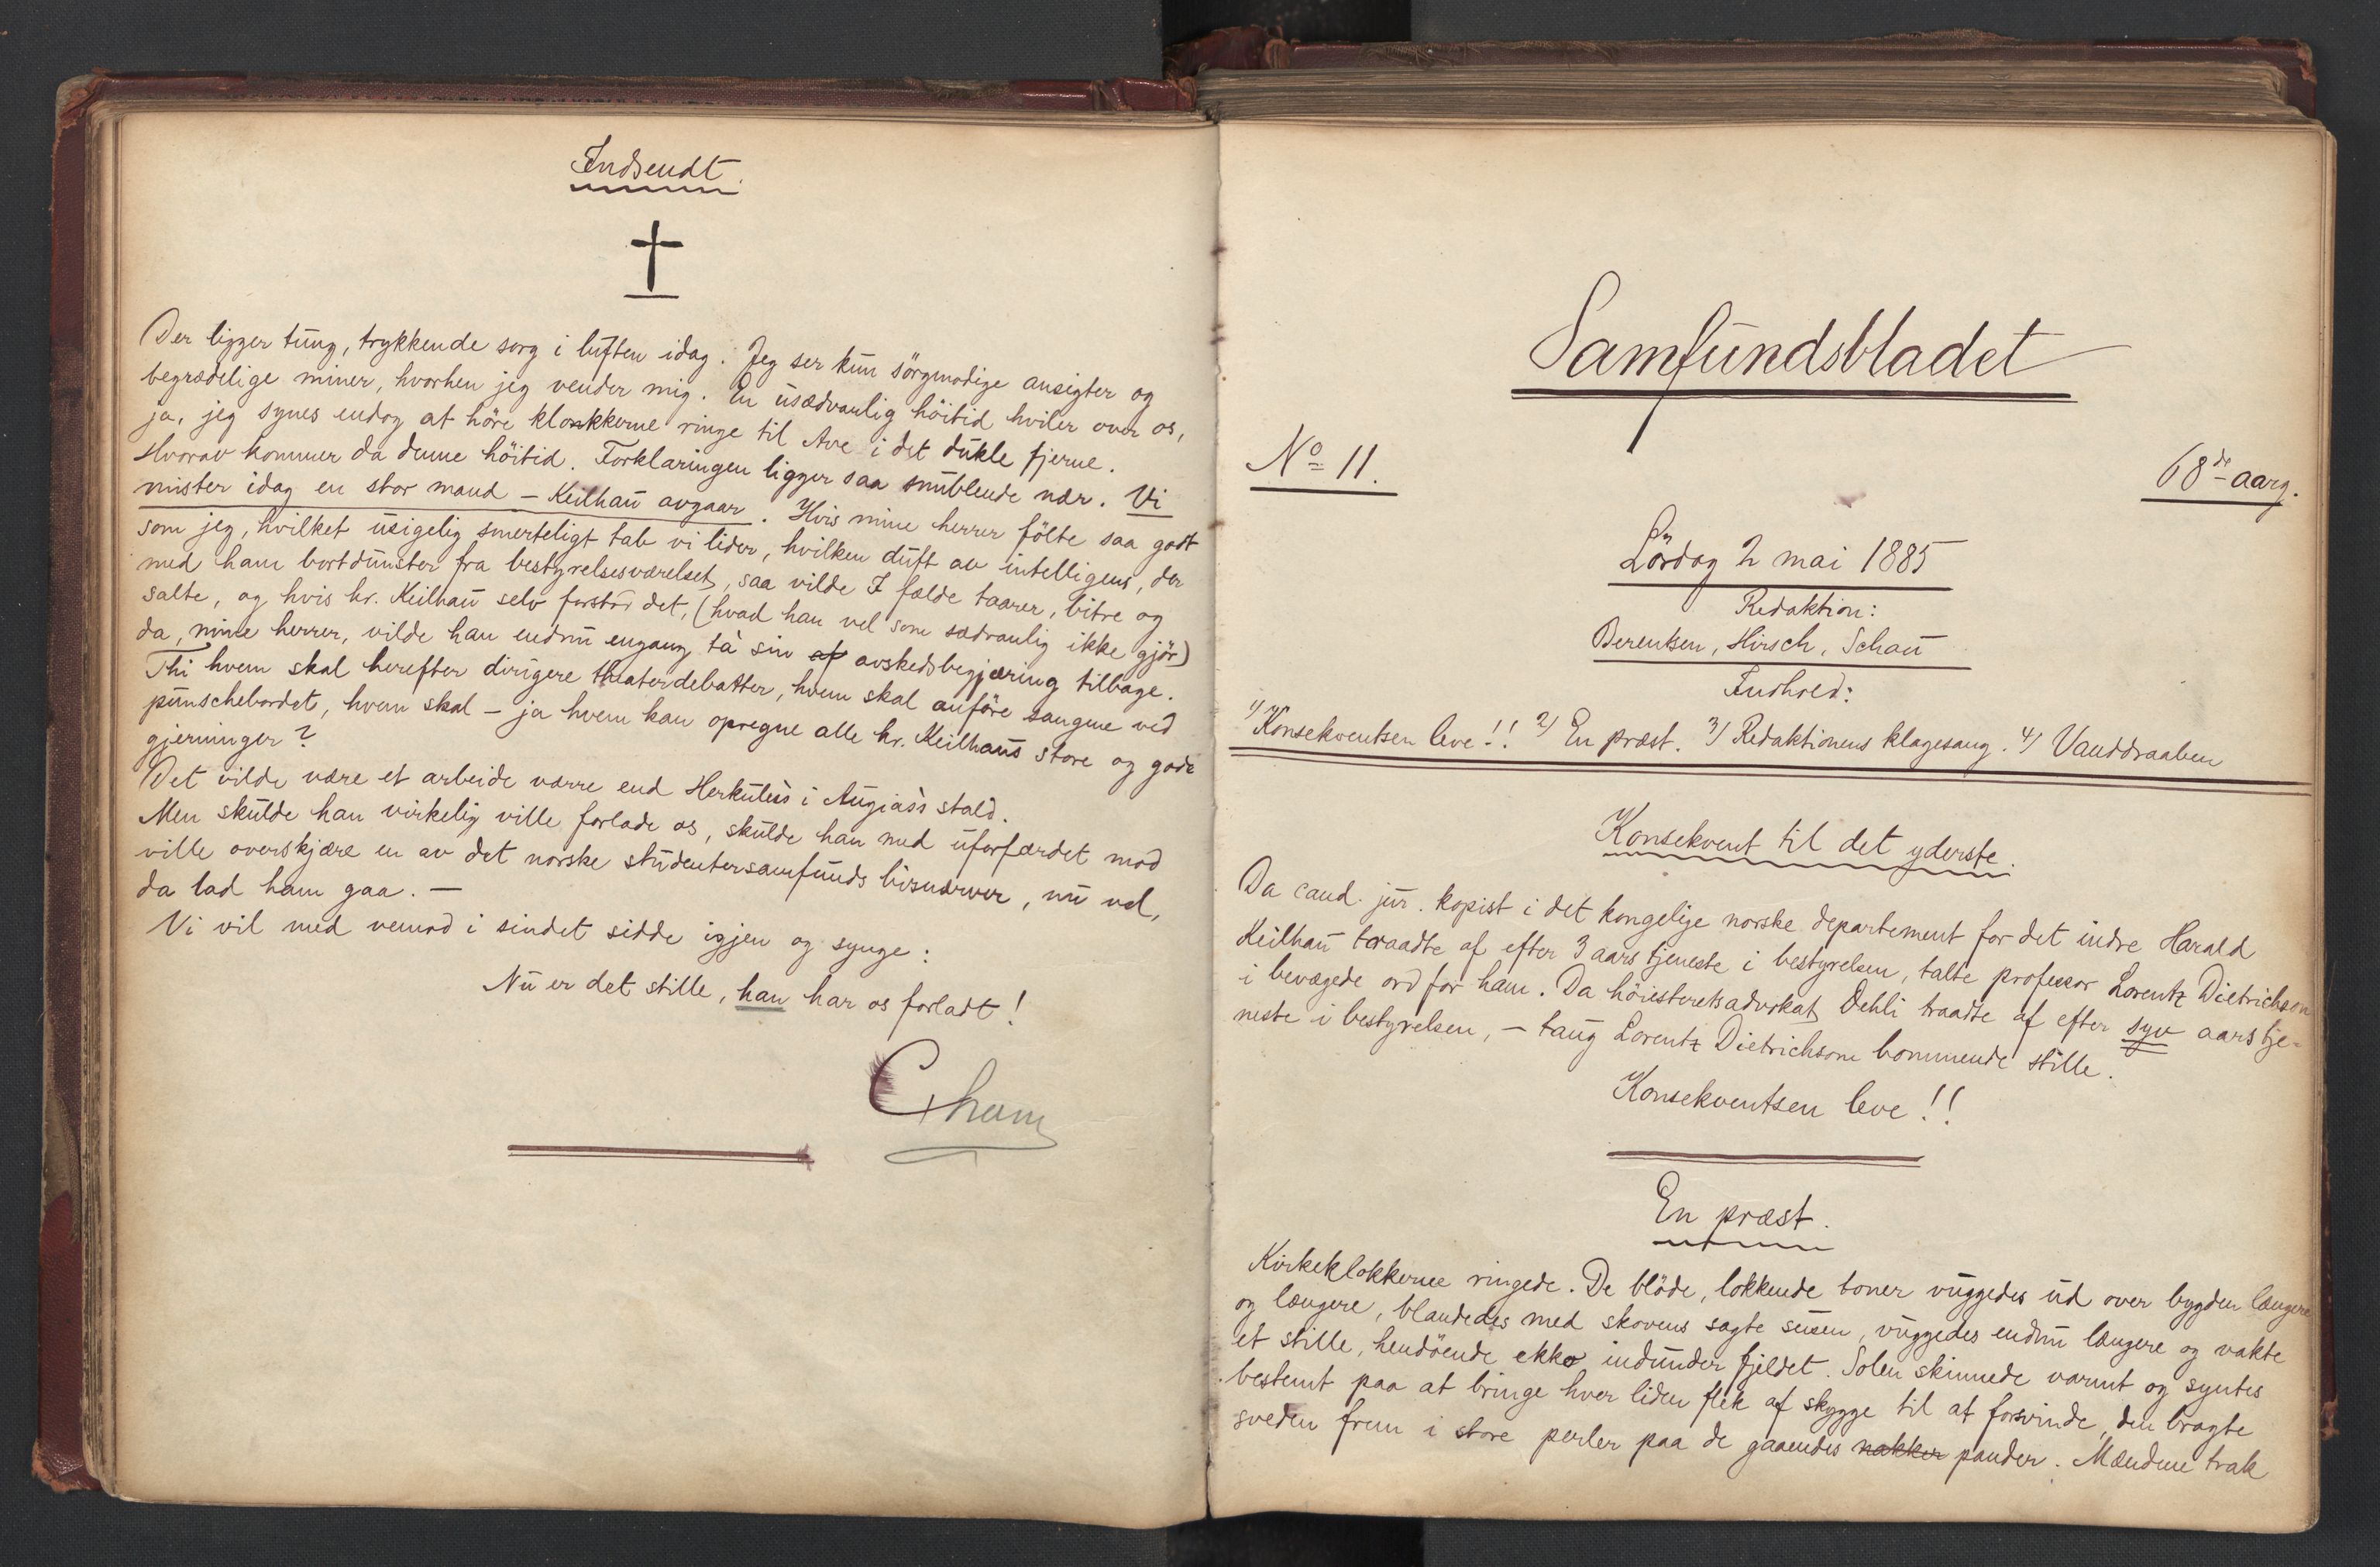 Indsendt.
†
Der ligger tung, trykkende sorg i luften idag. Jeg ser kun sörgmodige ansigter og
begrædelige miner, hvorhen jeg vender mig. En usædvanlig höitid hviler over os,
ja, jeg synes endog at höre klokkerne ringe til Ave i det dukle fjerne.
Hvorav kommer da denne höitid. Forklaringen ligger saa snublende nær. Vi
mister idag en stor mand – Keilhau avgaar. Hvis mine herrer fölte saa godt
som jeg, hvilket usigelig smerteligt tab vi lider, hvilken duft av intelligens, der
med ham bortdunster fra bestyrelsesværelset, saa vilde I fælde taarer, bitre og
salte, og hvis hr. Keilhau selv forstod det, (hvad han vel som sædvanlig ikke gjör)
da, mine herrer, vilde han endnu engang ta sin af avskedsbegjæring tilbage.
Thi hvem skal herefter dirigere theaterdebatter, hvem skal anföre sangene ved
punschebordet, hvem skal – ja hvem kan opregne alle hr. Keilhaus store og gode
gjerninger?
Det vilde være et arbeide værre end Herkules's i Augias's stald.
Men skulde han virkelig ville forlade os, skulde han med uforfærdet mod
ville overskjære en av det norske studentersamfunds livsnerver, nu vel,
da lad ham gaa. –
Vi vil med vemod i sindet sidde igjen og synge:
Nu er det stille, han har os forladt!
Cham
Samfundsbladet
No 11.
68de aarg.
Lördag 2 mai 1885
Redaktion:
Berentsen, Hirsch, Schau
Indhold:
1) Konsekventsen leve!! 2) En præst. 3) Redaktionens klagesang. 4) Vanddraaben
Konsekvent til det yderste.
Da cand. jur. kopist i det kongelige norske departement for det indre Harald
Keilhau traadte af efter 3 aars tjeneste i bestyrelsen, talte professor Lorentz Dietrichson
i bevægede ord for ham. Da höiesteretsadvokat Dehli traadte af efter syv aars tje-
neste i bestyrelsen, – taug Lorentz Dietrichson bommende stille.
Konsekventsen leve!!
En præst.
Kirkeklokkerne ringede. De blöde, lokkende toner vuggedes ud over bygden længere
og længere, blandedes med skovens sagte susen, vuggedes endnu længere og vakte
et stille, hendöende ekko indunder fjeldet. Solen skinnede varmt og syntes
bestemt paa at bringe hver liden flek af skygge til at forsvinde, den bragte
sveden frem i store perler paa de gaaendes nakker pander. Mændene trak